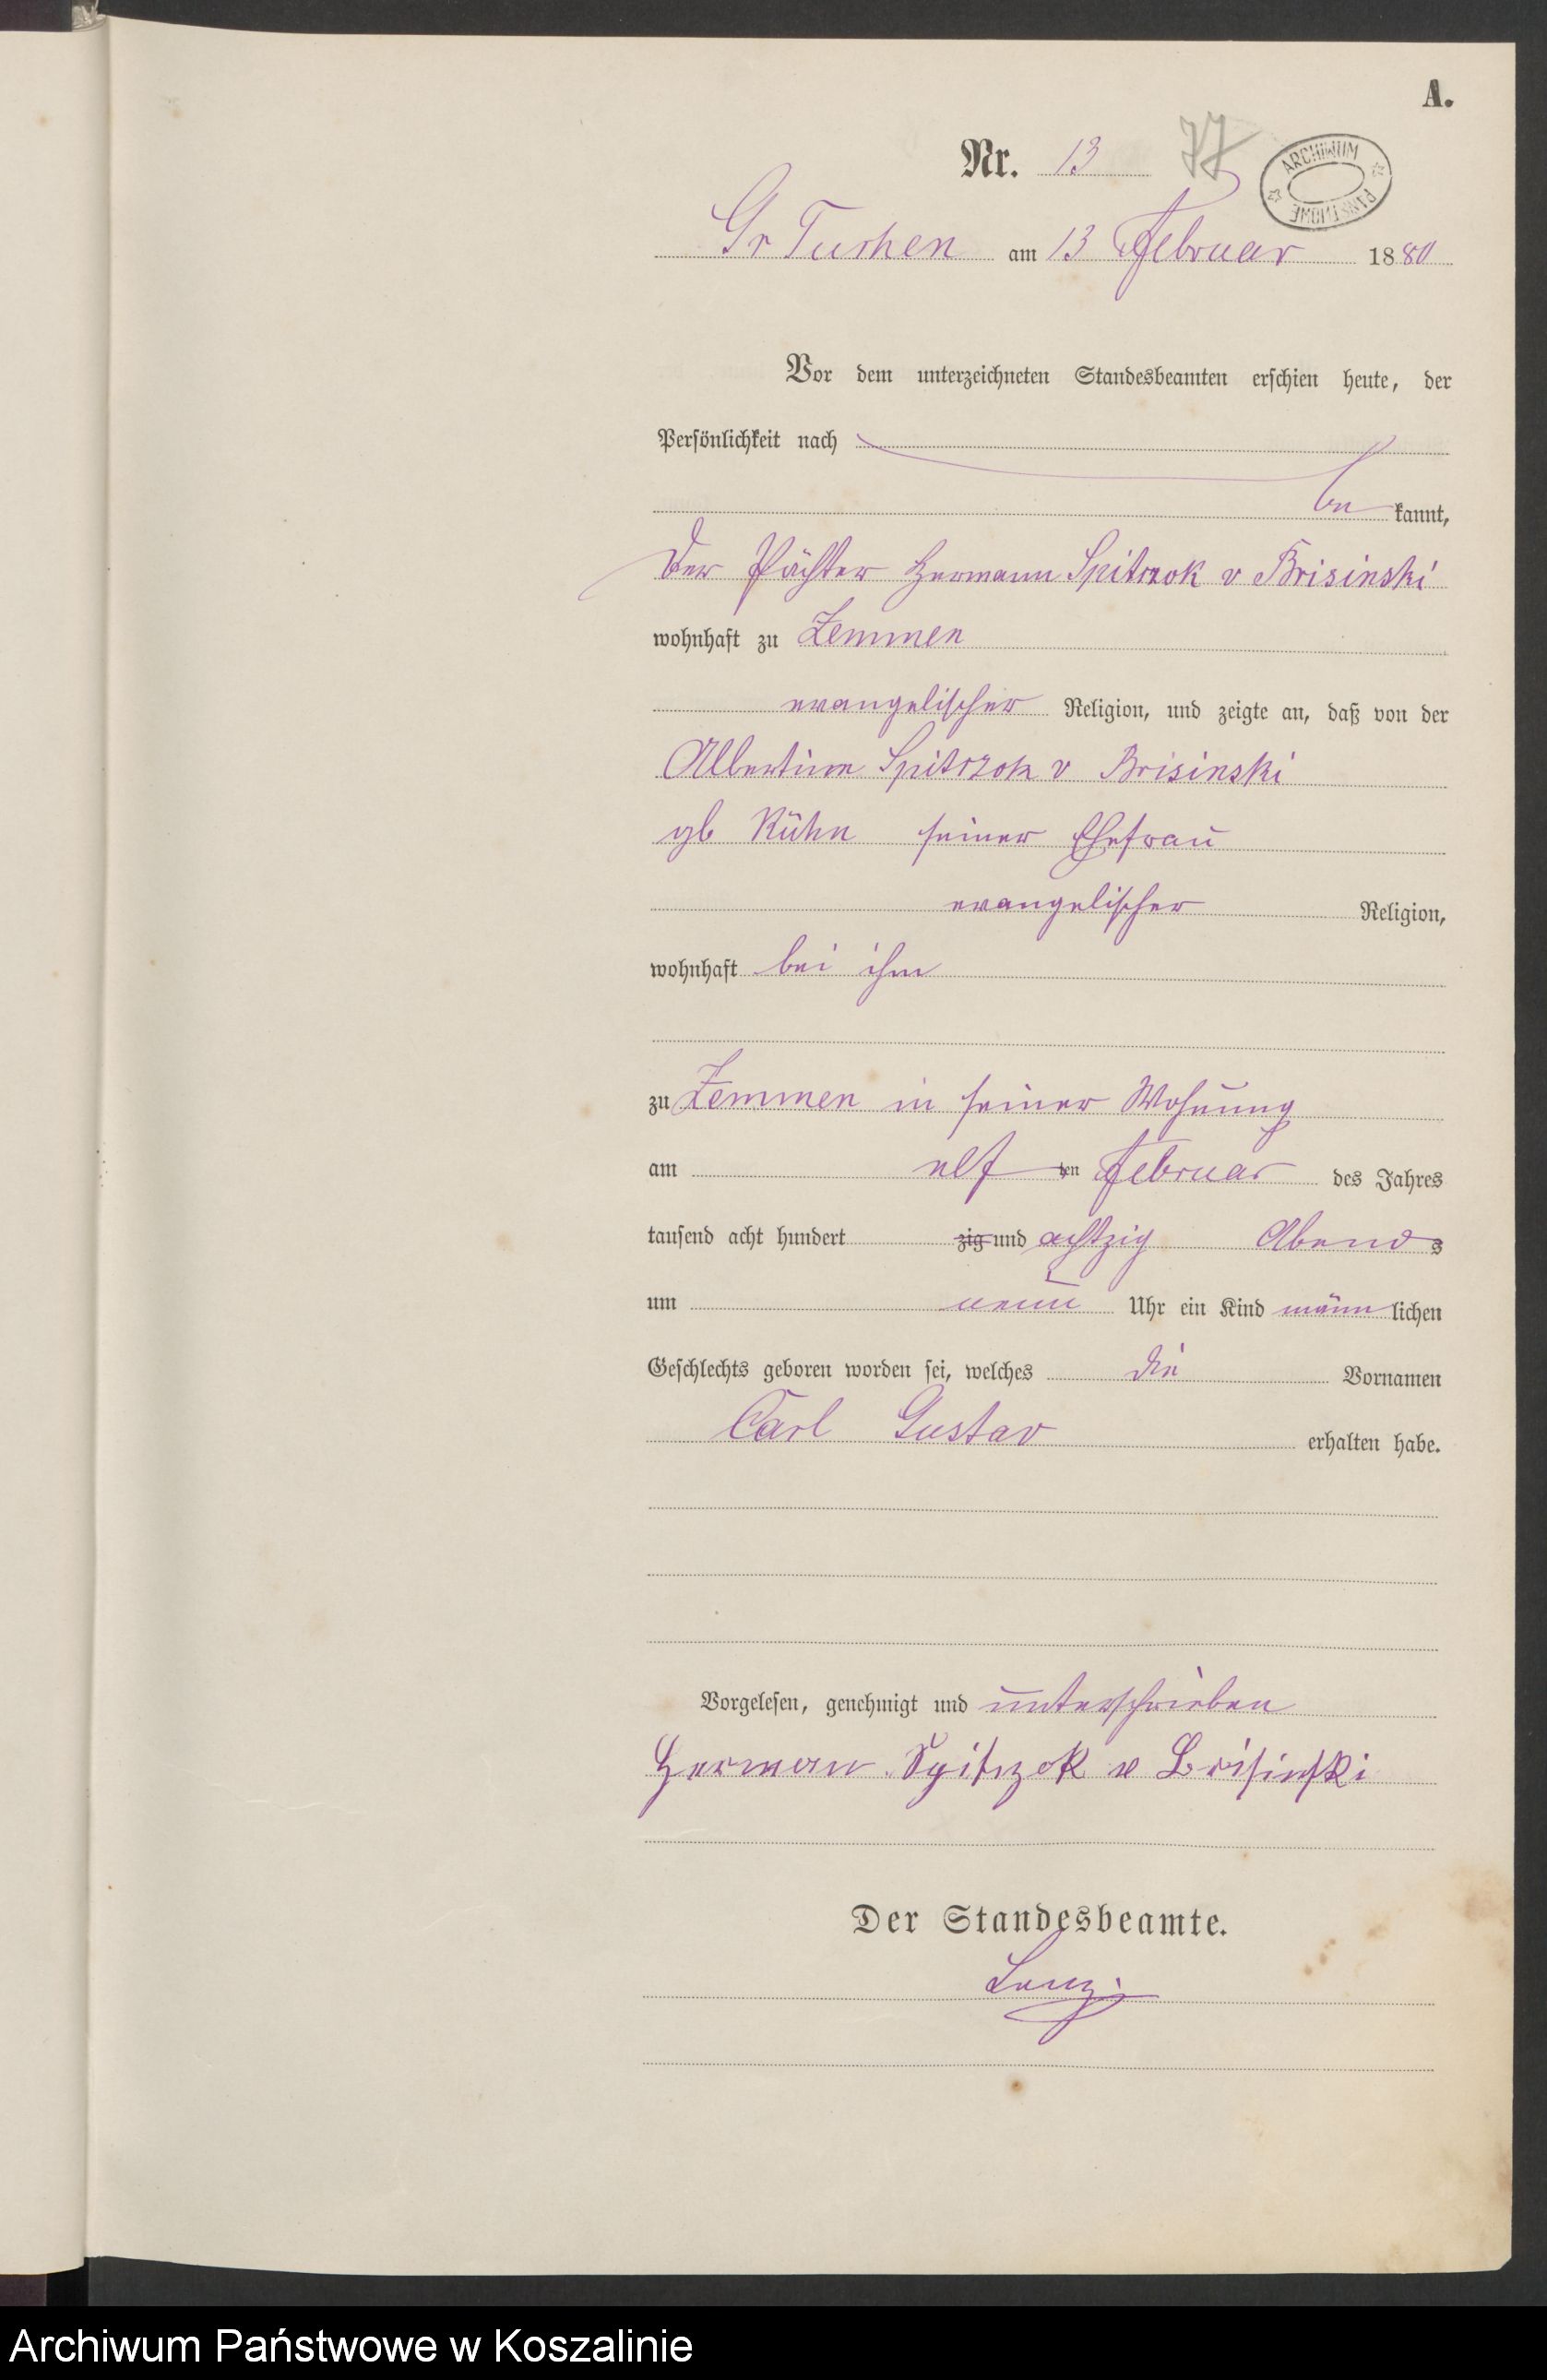 A.
Nr. 13
ARCHIWUM PAŃSTWOWE
Gr Tuchen am 13 Februar 1880
Vor dem unterzeichneten Standesbeamten erschien heute, der
Persönlichkeit nach
be kannt,
der Pächter Hermann Spitzok v Brisinski
wohnhaft zu Zemmen
evangelischer Religion, und zeigte an, daß von der
Albertine Spitzok v Brisinski
gb Kühn seiner Ehefrau
evangelischer Religion,
wohnhaft bei ihm
zu Zemmen in seiner Wohnung
am elf ten Februar des Jahres
tausend acht hundert zig und achtzig Abends
um neun Uhr ein Kind männlichen
Geschlechts geboren worden sei, welches die Vornamen
Carl Gustav erhalten habe.
Vorgelesen, genehmigt und unterschrieben
Herman Spitzok v Brisinski
Der Standesbeamte.
Archiwum Państwowe w Koszalinie